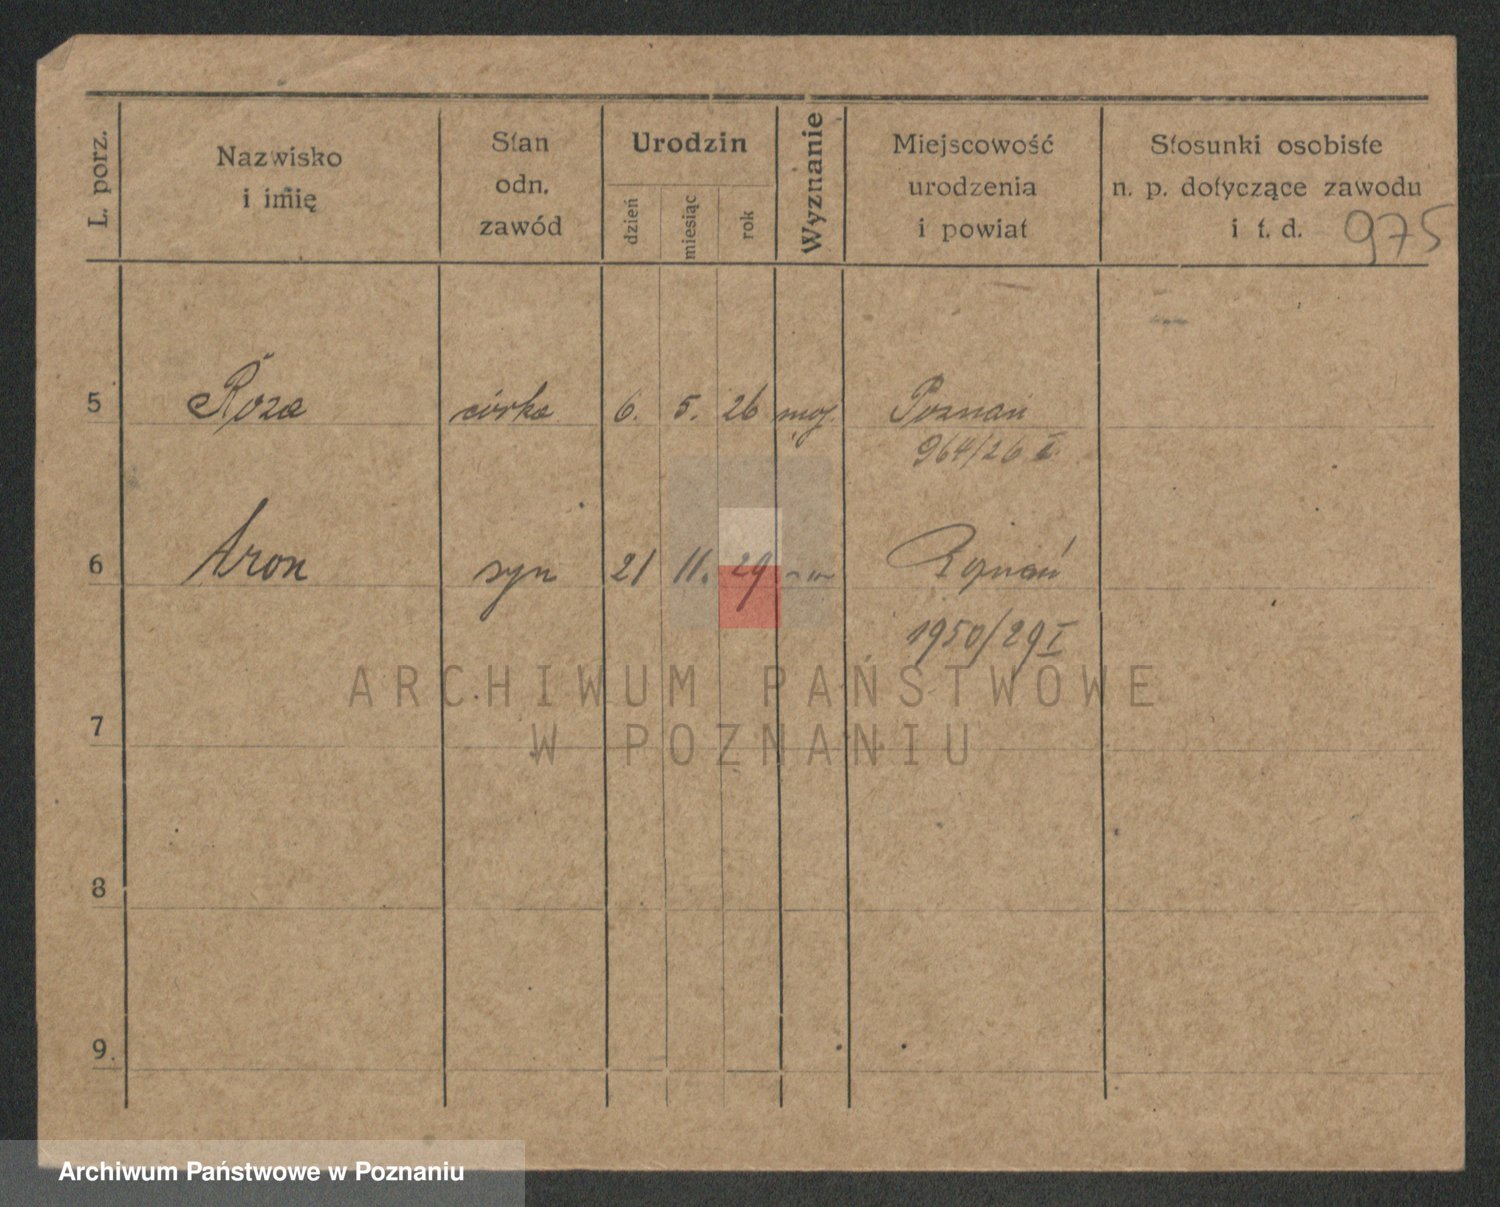 L. porz.
Nazwisko
i imię
Stan
odn.
zawód
Urodzin
dzień
miesiąc
rok
Wyznanie
Miejscowość
urodzenia
i powiat
Stosunki osobiste
n. p. dotyczące zawodu
i t. d.
975
5 Róża córka 6. 5. 26 moj. Poznań
964/26 I
6 Aron syn 21 11. 29 Poznań
1950/29 I
ARCHIWUM PAŃSTWOWE
W POZNANIU
7
8
9.
Archiwum Państwowe w Poznaniu